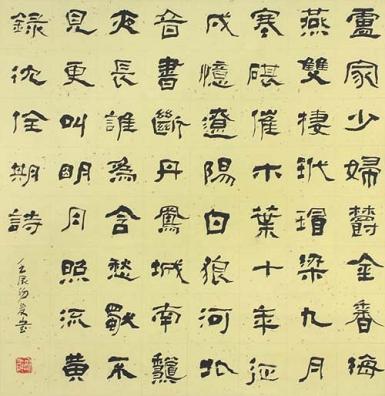 盧家少婦鬱金香海
燕雙棲玳瑁梁九月
寒碪催木葉十年征
戍憶遼陽白狼河北
音書斷丹鳳城南龝
夜長誰為含愁獨不
見更叫明月照流黃
錄沈佺期詩
壬辰書